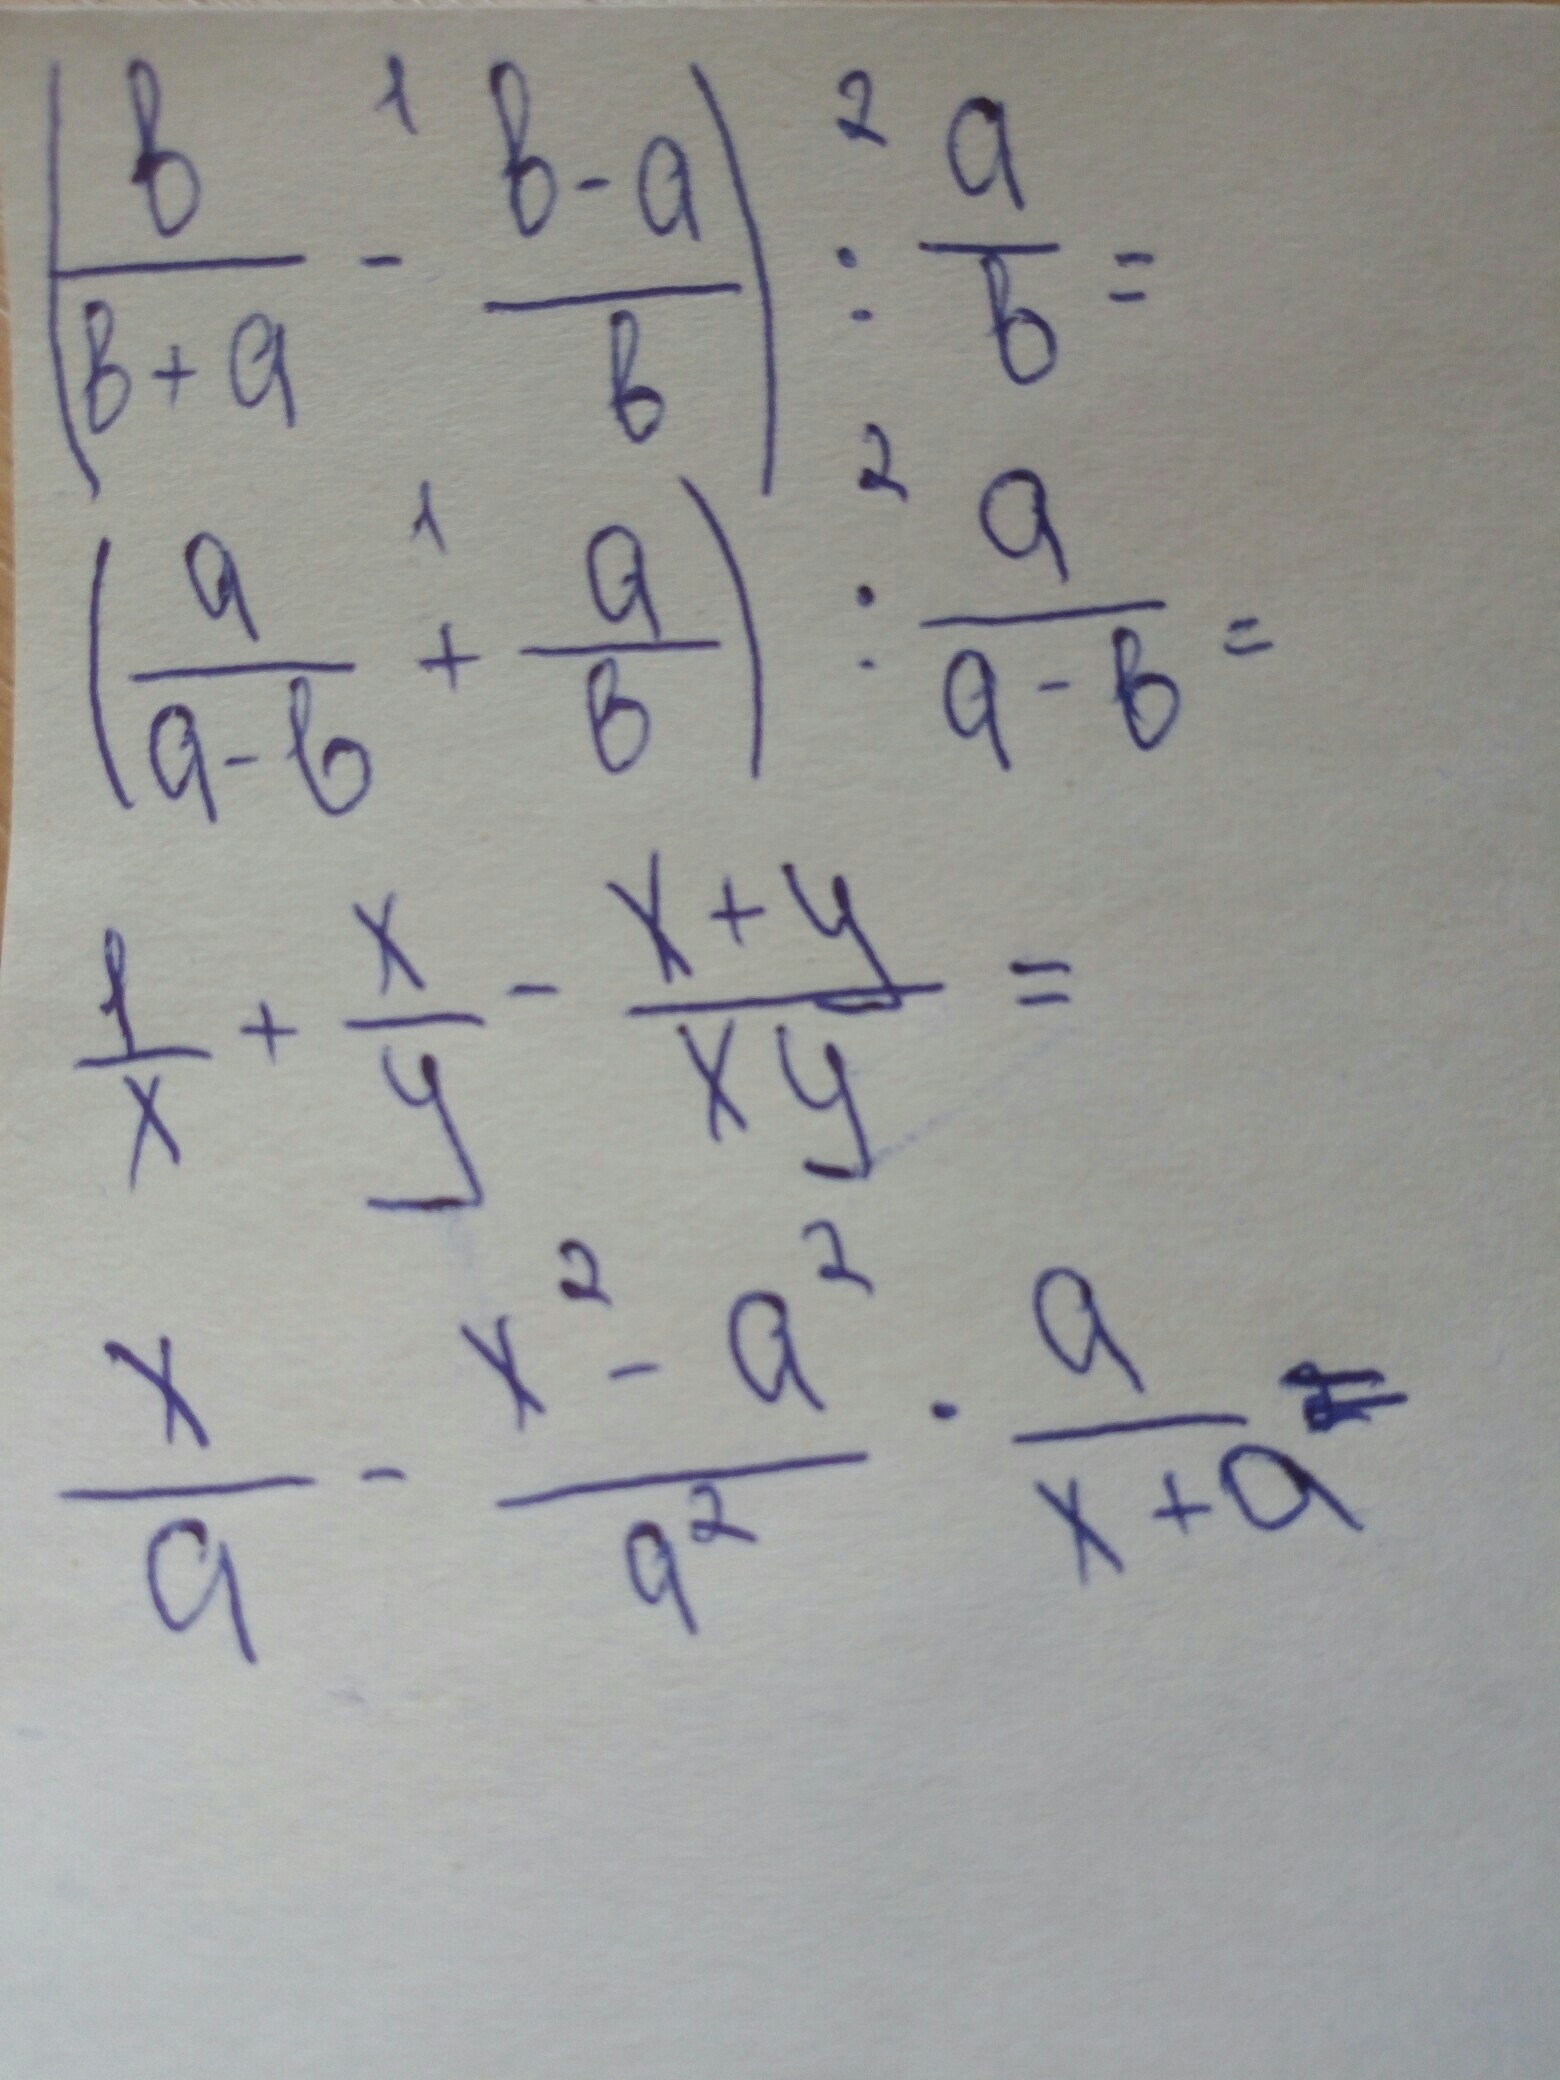 (b/(b+a) -¹ (b-a)/b) :² a/b =
(a/(a-b) +¹ a/b) :² a/(a-b) =
1/x + x/y - (x+y)/(xy) =
x/a - (x²-a²)/a² · a/(x+a) =